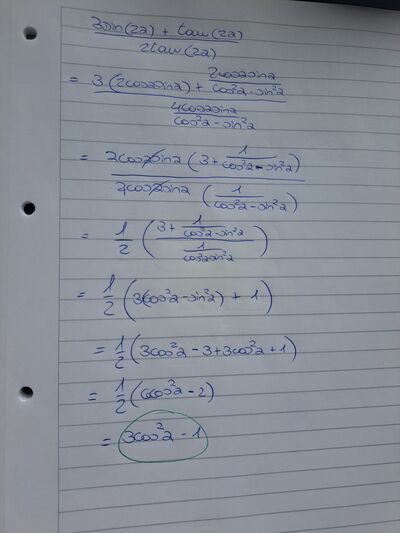 3sin(2a) + tan(2a)
2tan(2a)
= 3(2cosasina) + 2cosasina
cos²a-sin²a
4cosasina
cos²a-sin²a
= 2cosasina (3 + 1
cos²a-sin²a)
4cosasina (1
cos²a-sin²a)
= 1/2 (3 + 1
cos²a-sin²a
1
cos²asin²a)
= 1/2 (3(cos²a-sin²a) + 1)
= 1/2 (3cos²a - 3 + 3cos²a + 1)
= 1/2 (6cos²a - 2)
= 3cos²a - 1